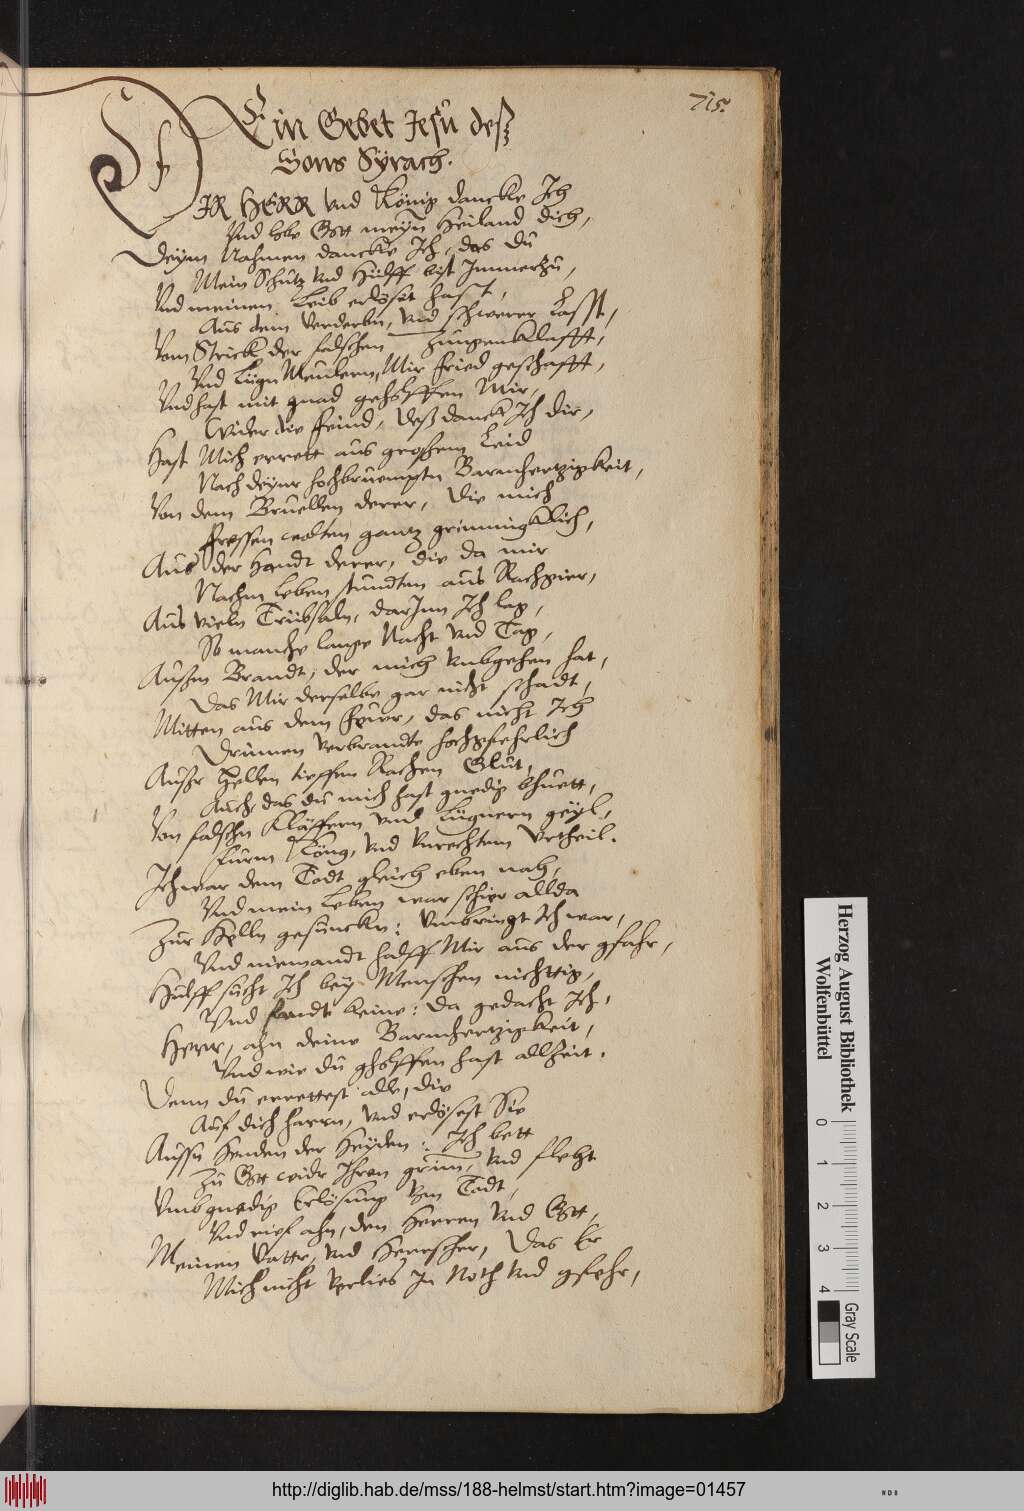 715.
Ein Gebet Jesu deß
Sons Syrach.
DIR HERR vnd König dancke Ich
Vnd lobe Gott meyn Heiland dich,
Deynn Nahmen dancke Ich, das du
Mein Schutz vnd Hülff bist Jmmerzu,
Vnd meinen Leib erlöset hast,
Aus dem Verderbn, vnd schwerer Last,
Vom Strick der falschen Zungenklafft,
Vnd Lügn Meulern, Mir fried geschafft,
Vnd hast mit gnad geholffen Mir,
Wider die Feind, deß danck Ich dir,
Hast Mich errett aus grossem Leid
Nach deynr hochbruempten Barmhertzigkeit,
Von dem Bruellen derer, die mich
Fressen wolten gantz grimmigklich,
Aus der Handt derer, die da mir
Nachm Leben stundten aus Rachgier,
Aus vieln Trübsaln, darJnn Ich lag,
So manche lange Nacht vnd Tag,
Außm Brandt, der mich vmbgeben hat,
Das Mir derselbe gar nicht schadt,
Mitten aus dem Feuer, das nicht Ich
Drinnen verbrandte hochgfehrlich
Außr Hellen tieffen Rachen Glut,
Auch, das du mich hast gnedig bhuett,
Von falschn Kläffern vnd Lügnern geyl,
Fürm König, vnd vnrechtem Vrtheil.
Ich war dem Todt gleich eben nah,
Vnd mein Leben war schier allda
Zur Helln gesuncken: Vmbringt Ich war,
Vnd niemandt halff Mir aus der gfahr,
Hülff sucht Ich bey Menschen nichttig,
Vnd fandt keine: da gedacht Ich,
Herr, ahn deine Barmhertzigkeit,
Vnd wie du gholffen hast allzeit.
Denn du errettest alle, die
Auf dich harrn, vnd erlösest Sie
Aussn Henden der Heyden: Ich bett
Zu Gott widr Ihren grim, vnd fleht
Vmb gnedig Erlösung vom Todt,
Vnd rief ahn, den Herren vnd Gott,
Meinen Vattr, vnd Herrscher, Das Er
Mich nicht verlies Jn Noth vnd gfehr,
Herzog August Bibliothek
Wolfenbüttel
0 1 2 3 4
Gray Scale
http://diglib.hab.de/mss/188-helmst/start.htm?image=01457